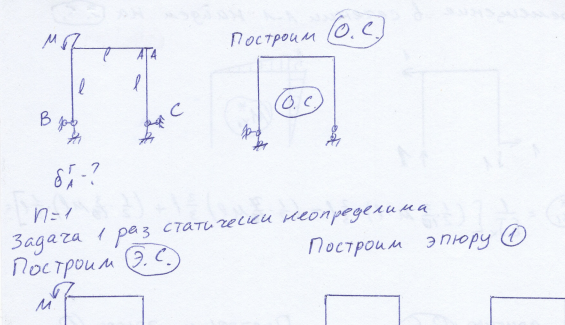 Построим О.С.
M
l
A A
l
l
B
C
О.С.
n=1
Задача 1 раз статически неопределима
Построим Э.С.
Построим эпюру 1
M